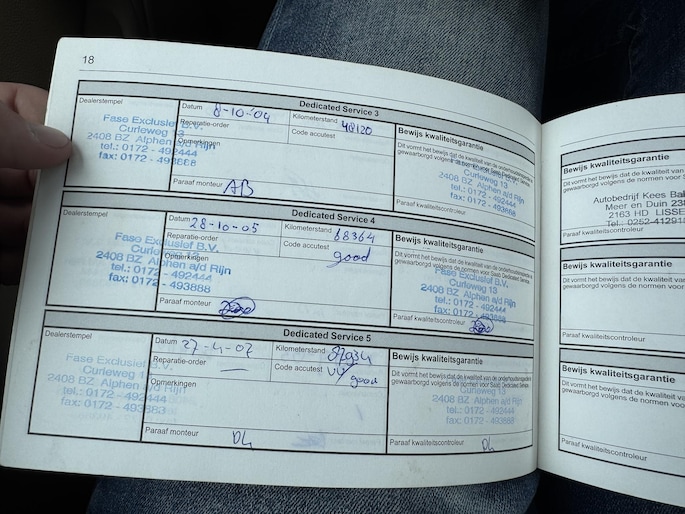 18
Dedicated Service 3
Dealerstempel
Datum 8-10-'04
Kilometerstand 48120
Reparatie-order
Code accutest
Opmerkingen
Fase Exclusief B.V.
Curleweg 13
2408 BZ Alphen a/d Rijn
tel.: 0172 - 492444
fax: 0172 - 493888
Paraaf monteur AB
Bewijs kwaliteitsgarantie
Dit vormt het bewijs dat de kwaliteit van de onderhoudsbeurt
gewaarborgd volgens de normen voor Saab Dedicated Service
Curleweg 13
2408 BZ Alphen a/d Rijn
tel.: 0172 - 492444
fax: 0172 - 493888
Paraaf kwaliteitscontroleur
Dedicated Service 4
Dealerstempel
Datum 28-10-05
Kilometerstand 68364
Reparatie-order
Code accutest good
Opmerkingen
Fase Exclusief B.V.
Curleweg 13
2408 BZ Alphen a/d Rijn
tel.: 0172 - 492444
fax: 0172 - 493888
Paraaf monteur
Bewijs kwaliteitsgarantie
Dit vormt het bewijs dat de kwaliteit van de
gewaarborgd volgens de normen voor Saab Dedicated Service
Fase Exclusief B.V.
Curleweg 13
2408 BZ Alphen a/d Rijn
tel.: 0172 - 492444
fax: 0172 - 493888
Paraaf kwaliteitscontroleur
Dedicated Service 5
Dealerstempel
Datum 27-4-07
Kilometerstand 87934
Reparatie-order
Code accutest good
Opmerkingen
Fase Exclusief B.V.
Curleweg 13
2408 BZ Alphen a/d Rijn
tel.: 0172 - 492444
fax: 0172 - 493888
Paraaf monteur
Bewijs kwaliteitsgarantie
Dit vormt het bewijs dat de kwaliteit van de
gewaarborgd volgens de normen voor Saab Dedicated Service
Curleweg 13
2408 BZ Alphen a/d Rijn
tel.: 0172 - 492444
fax: 0172 - 493888
Paraaf kwaliteitscontroleur
Bewijs kwaliteitsgarantie
Dit vormt het bewijs dat de kwaliteit van
gewaarborgd volgens de normen voor
Autobedrijf Kees
Meer en Duin
2163 HD LISSE
Tel.: 0252-41291
Paraaf kwaliteitscontroleur
Bewijs kwaliteitsgarantie
Dit vormt het bewijs dat de kwaliteit van
gewaarborgd volgens de normen voor
Paraaf kwaliteitscontroleur
Bewijs kwaliteitsgarantie
Dit vormt het bewijs dat de kwaliteit van
gewaarborgd volgens de normen voor
Paraaf kwaliteitscontroleur